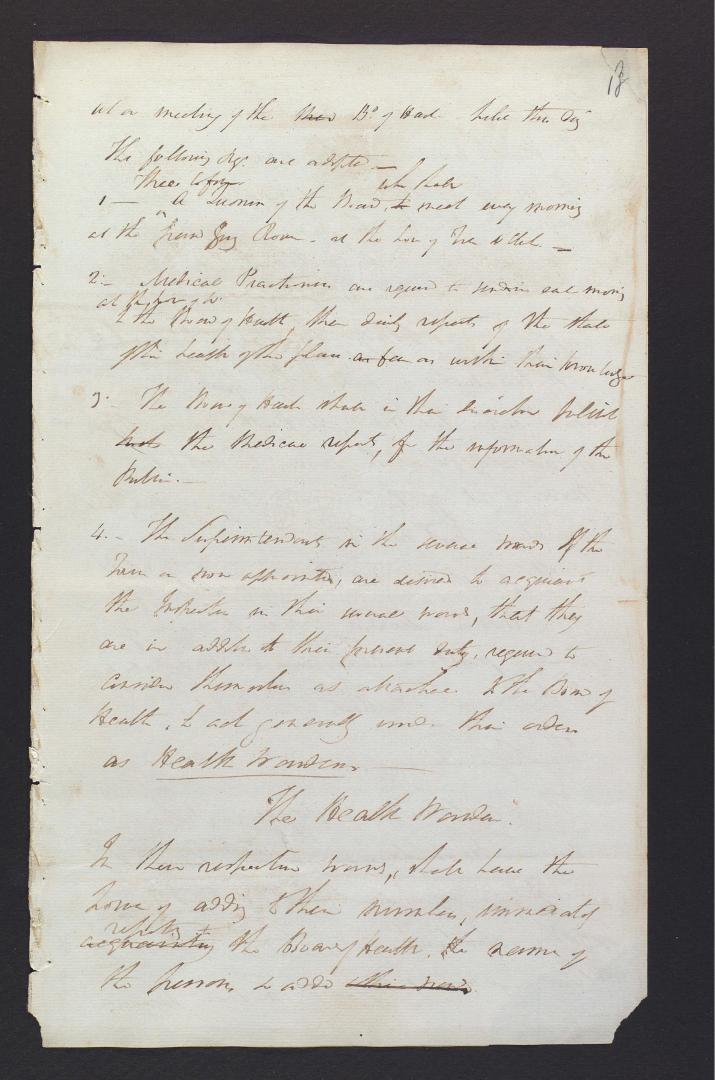 18
at a meeting of the New Bd of Health held this day
The following Regs are adopted —
Three to form who shall
1 — A Quorum of the Board, to meet every morning
at the Grand Jury Room - at the hour of Ten o'Clock —
2 - Medical Practitioners are required to send in each morning
at the hour of
to the Board of Health, their daily reports of the state
of the health of the place as far as within their knowledge
3 - The Board of Health shall in their discretion publish
the Medical reports, for the information of the
Public. —
4. - The Superintendents in the several wards of the
Town as now appointed, are desired to acquaint
the Inspectors in their several wards, that they
are in addition to their present duty, required to
consider themselves as attached to the Board of
Health, & act generally under their orders
as Health Wardens —
The Health Wardens.
In their respective wards, shall have the
power of adding to their number, immediately
reporting
acquainting the Board of Health, the names of
the persons so added